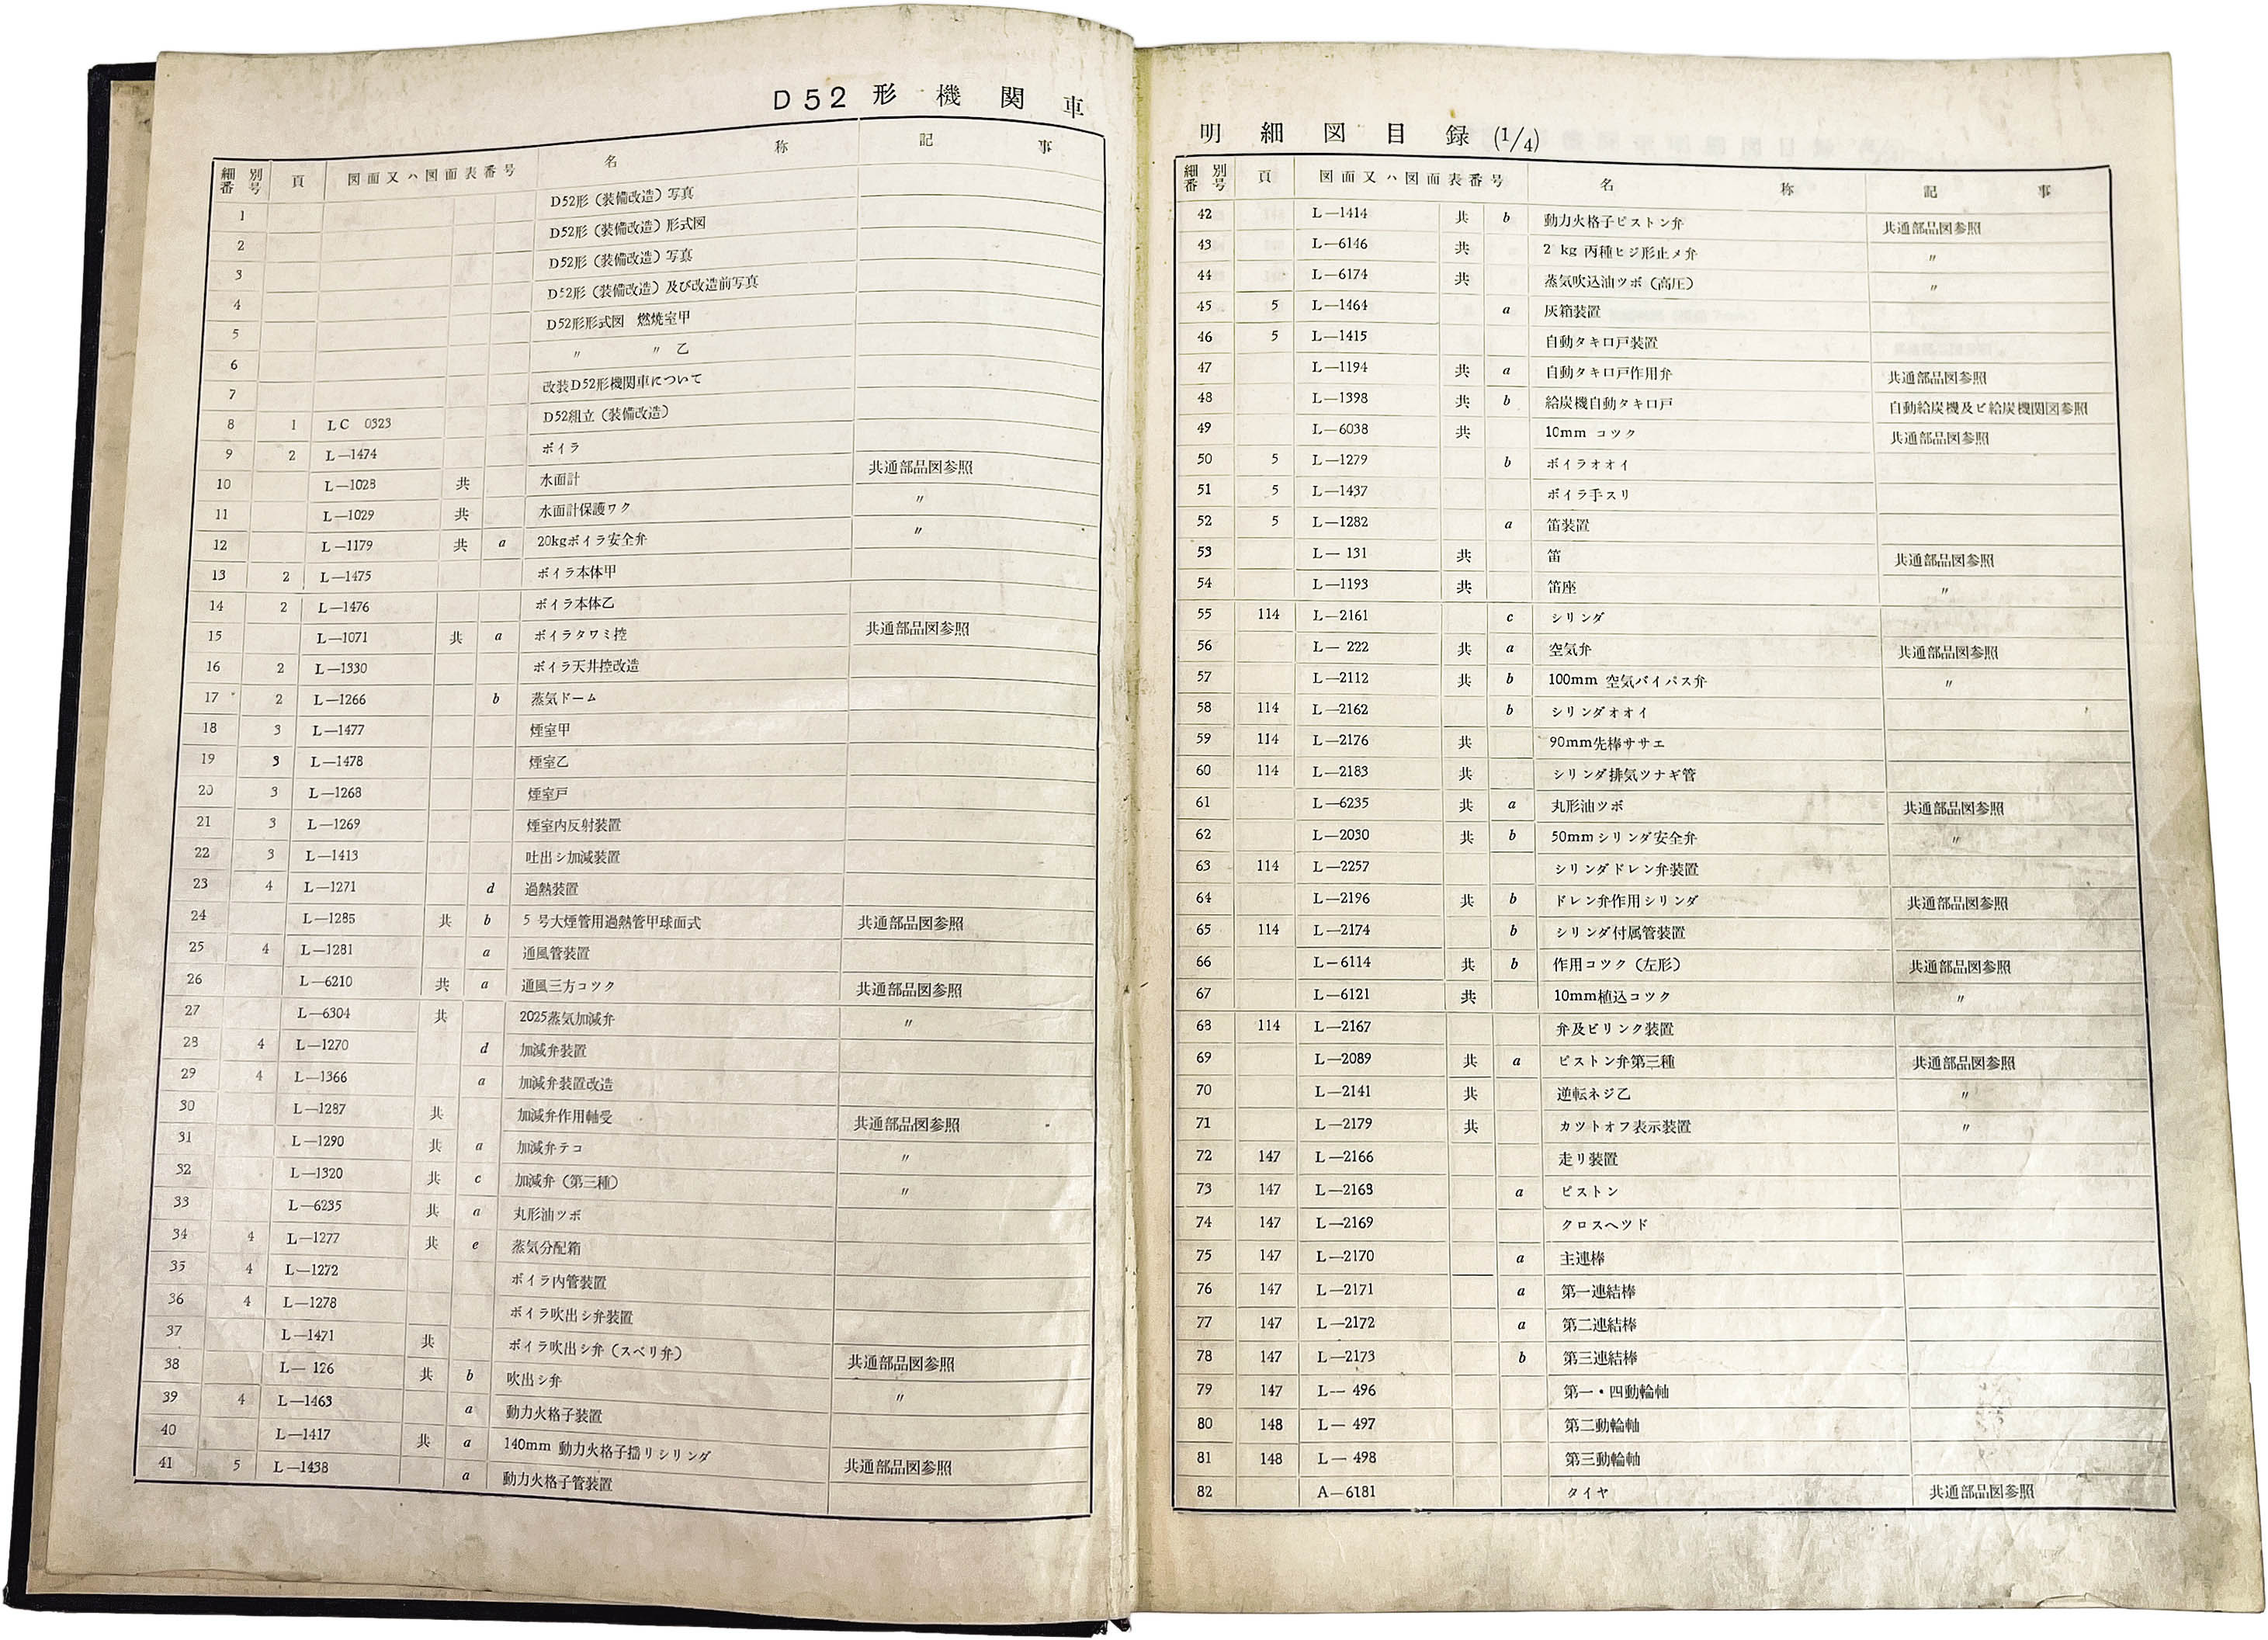 D52 形 機 関 車
細別番号 頁 図面又ハ図面表番号 名 称 記 事
1 D52形（装備改造）写真
2 D52形（装備改造）形式図
3 D52形（装備改造）写真
4 D52形（装備改造）及び改造前写真
5 D52形形式図 燃焼室甲
6 〃 〃 乙
7 改装D52形機関車について
8 1 LC 0323 D52組立（装備改造）
9 2 L—1474 ボイラ
10 L—1028 共 水面計 共通部品図参照
11 L—1029 共 水面計保護ワク 〃
12 L—1179 共 a 20kgボイラ安全弁 〃
13 2 L—1475 ボイラ本体甲
14 2 L—1476 ボイラ本体乙
15 L—1071 共 a ボイラタワミ控 共通部品図参照
16 2 L—1330 ボイラ天井控改造
17 2 L—1266 b 蒸気ドーム
18 3 L—1477 煙室甲
19 3 L—1478 煙室乙
20 3 L—1268 煙室戸
21 3 L—1269 煙室内反射装置
22 3 L—1413 吐出シ加減装置
23 4 L—1271 d 過熱装置
24 L—1285 共 b 5 号大煙管用過熱管甲球面式 共通部品図参照
25 4 L—1281 a 通風管装置
26 L—6210 共 a 通風三方コツク 共通部品図参照
27 L—6304 共 2025蒸気加減弁 〃
28 4 L—1270 d 加減弁装置
29 4 L—1366 a 加減弁装置改造
30 L—1287 共 加減弁作用軸受 共通部品図参照
31 L—1290 共 a 加減弁テコ 〃
32 L—1320 共 c 加減弁（第三種） 〃
33 L—6235 共 a 丸形油ツボ
34 4 L—1277 共 e 蒸気分配箱
35 4 L—1272 ボイラ内管装置
36 4 L—1278 ボイラ吹出シ弁装置
37 L—1471 共 ボイラ吹出シ弁（スベリ弁） 共通部品図参照
38 L— 126 共 b 吹出シ弁 〃
39 4 L—1463 a 動力火格子装置
40 L—1417 共 a 140mm 動力火格子揺リシリンダ 共通部品図参照
41 5 L—1438 a 動力火格子管装置
明 細 図 目 録 (1/4)
細別番号 頁 図面又ハ図面表番号 名 称 記 事
42 L—1414 共 b 動力火格子ピストン弁 共通部品図参照
43 L—6146 共 2 kg 丙種ヒジ形止メ弁 〃
44 L—6174 共 蒸気吹込油ツボ（高圧） 〃
45 5 L—1464 a 灰箱装置
46 5 L—1415 自動タキロ戸装置
47 L—1194 共 a 自動タキロ戸作用弁 共通部品図参照
48 L—1398 共 b 給炭機自動タキロ戸 自動給炭機及ビ給炭機関図参照
49 L—6038 共 10mm コツク 共通部品図参照
50 5 L—1279 b ボイラオオイ
51 5 L—1437 ボイラ手スリ
52 5 L—1282 a 笛装置
53 L— 131 共 笛 共通部品図参照
54 L—1193 共 笛座 〃
55 114 L—2161 c シリンダ
56 L— 222 共 a 空気弁 共通部品図参照
57 L—2112 共 b 100mm 空気バイパス弁 〃
58 114 L—2162 b シリンダオオイ
59 114 L—2176 共 90mm先棒ササエ
60 114 L—2183 共 シリンダ排気ツナギ管
61 L—6235 共 a 丸形油ツボ 共通部品図参照
62 L—2030 共 b 50mmシリンダ安全弁 〃
63 114 L—2257 シリンダドレン弁装置
64 L—2196 共 b ドレン弁作用シリンダ 共通部品図参照
65 114 L—2174 b シリンダ付属管装置
66 L—6114 共 b 作用コツク（左形） 共通部品図参照
67 L—6121 共 10mm植込コツク 〃
68 114 L—2167 弁及ビリンク装置
69 L—2089 共 a ピストン弁第三種 共通部品図参照
70 L—2141 共 逆転ネジ乙 〃
71 L—2179 共 カツトオフ表示装置 〃
72 147 L—2166 走リ装置
73 147 L—2168 a ピストン
74 147 L—2169 クロスヘツド
75 147 L—2170 a 主連棒
76 147 L—2171 a 第一連結棒
77 147 L—2172 a 第二連結棒
78 147 L—2173 b 第三連結棒
79 147 L— 496 第一・四動輪軸
80 148 L— 497 第二動輪軸
81 148 L— 498 第三動輪軸
82 A—6181 タイヤ 共通部品図参照